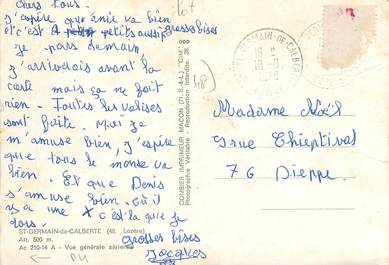 Chers tous.
J'espère que ânie va bien
et c'est petits aussi grosses bises
je pars demain,
j'arriverais avant la
carte mais ça ne fait
rien. Toutes les valises
sont faite. Moi je
m'amuse bien, j'espère
que tous le monde va
bien. Et que Denis
s'amuse bien. Où il
y a une x c'est la que je
dors.
grosses bises
Jacques
ST-GERMAIN-de-CALBERTE (48. Lozère)
Alt. 500 m.
Ac 250-14 A - Vue générale aérienne
COMBIER IMPRIMEUR MACON (71. S.-&-L.) "CIM"
Photographie Véritable - Reproduction Interdite.
ST-GERMAIN-DE-CALBERTE
48
Madame Noël
rue Thieptival
76 Dieppe